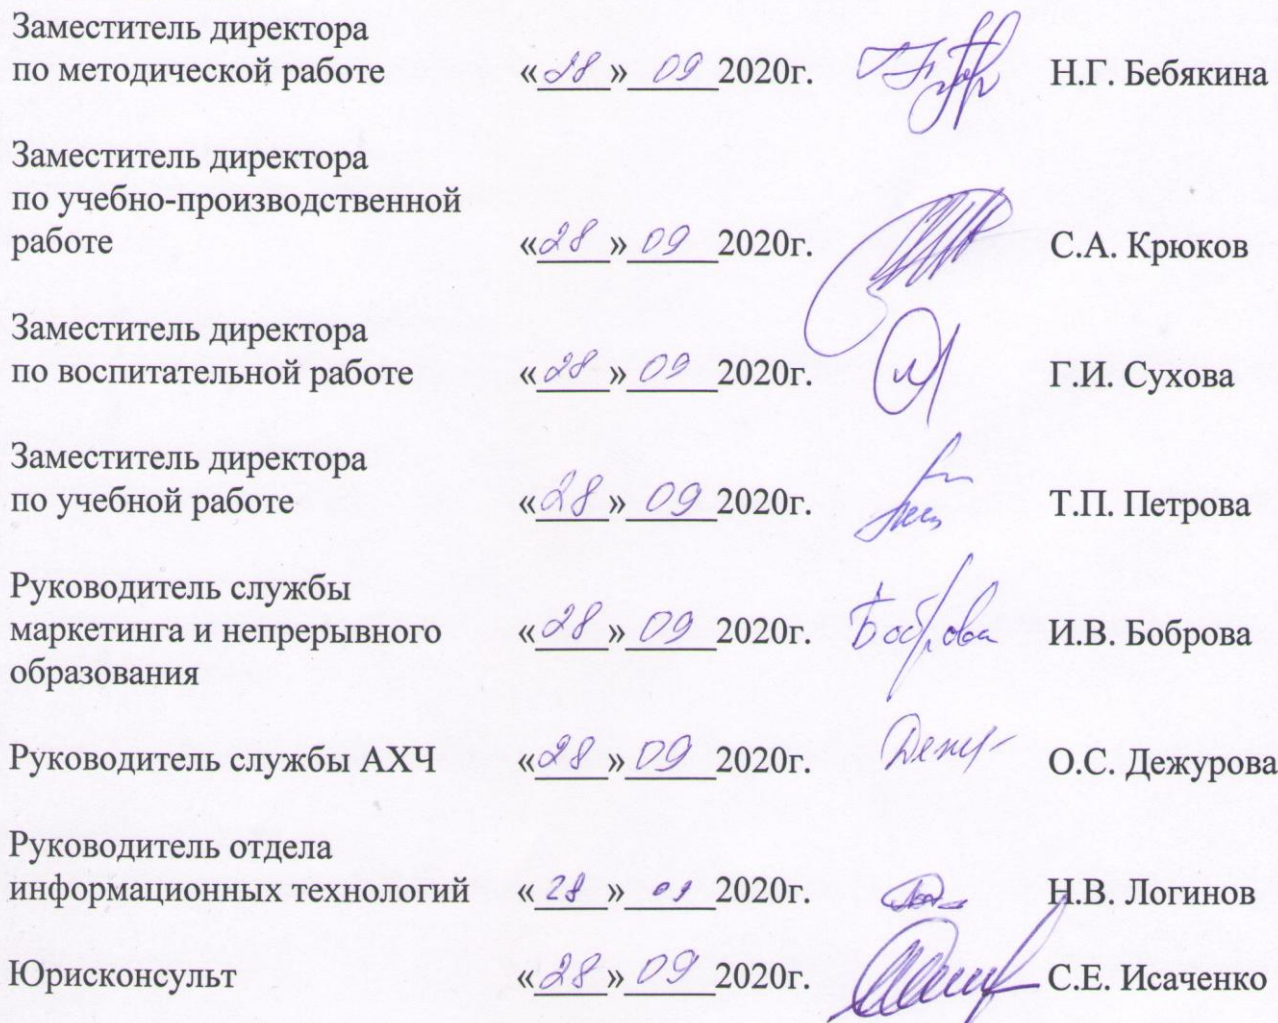 Заместитель директора
по методической работе «28» 09 2020г. Н.Г. Бебякина
Заместитель директора
по учебно-производственной
работе «28» 09 2020г. С.А. Крюков
Заместитель директора
по воспитательной работе «28» 09 2020г. Г.И. Сухова
Заместитель директора
по учебной работе «28» 09 2020г. Т.П. Петрова
Руководитель службы
маркетинга и непрерывного «28» 09 2020г. Боброва И.В. Боброва
образования
Руководитель службы АХЧ «28» 09 2020г. О.С. Дежурова
Руководитель отдела
информационных технологий «28» 09 2020г. Н.В. Логинов
Юрисконсульт «28» 09 2020г. С.Е. Исаченко